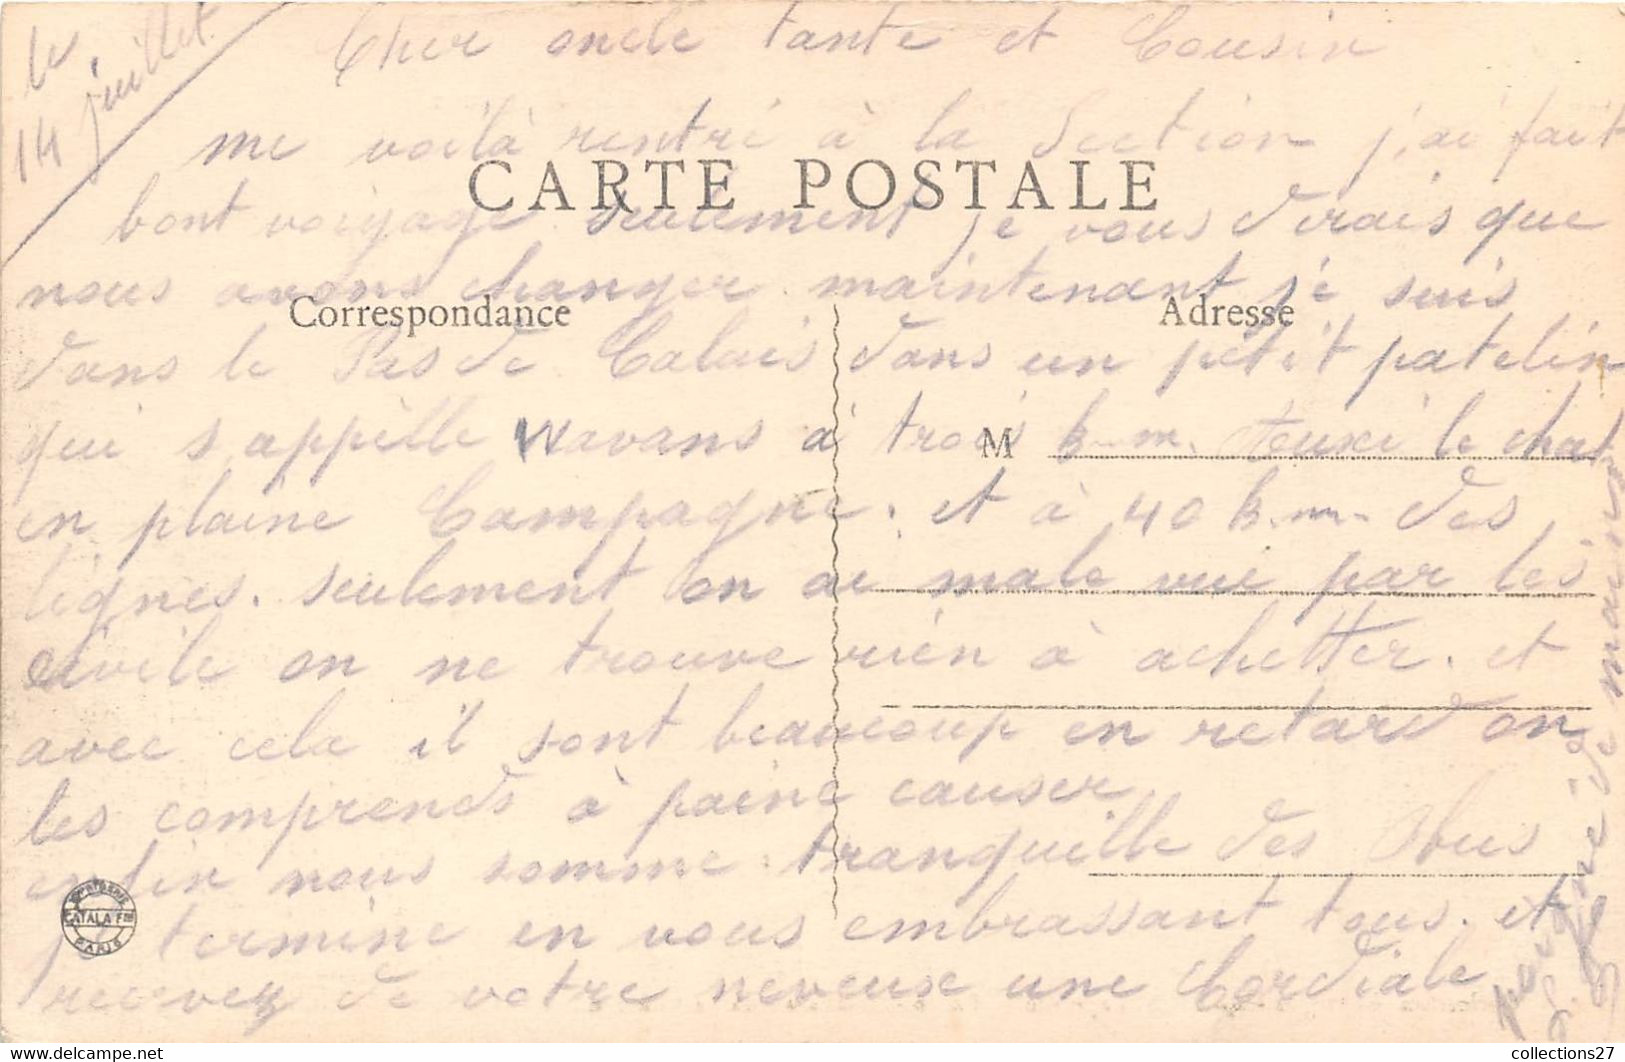 le
14 juillet
Cher oncle tante et Cousin
me voilà rentré à la Section j,ai fait
CARTE POSTALE
bont voiyage seulement je vous dirais que
nous avons changer maintenant je suis
Correspondance
Adresse
dans le Pas de Calais dans un petit patelin
qui s appelle Wavans à trois k.m.
M
en plaine Campagne. et à 40 k.m. des
lignes. seulement on ai male vue par les
civile on ne trouve rien à achetter. et
avec cela il sont beaucoup en retard on
les comprends à paine causer
enfin nous somme tranquille des Obus
je termine en vous embrassant tous. et
recevez de votre neveux une Cordiale
poigné de main
CATALA Fres
PARIS
collections27